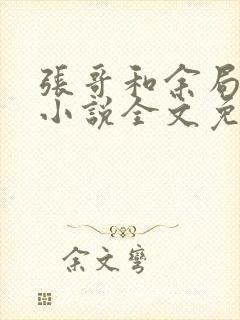 張哥和余局
小說全文免
余文彎